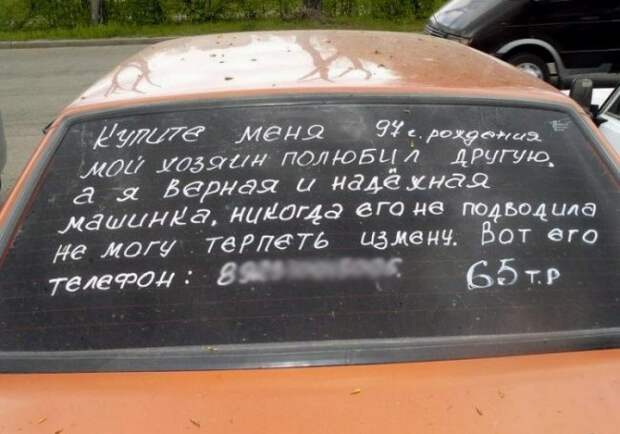 Купите меня 97 г. рождения
мой хозяин полюбил другую.
а я верная и надёжная
машинка. никогда его не подводила
не могу терпеть измену. Вот его
телефон: 65 т.р